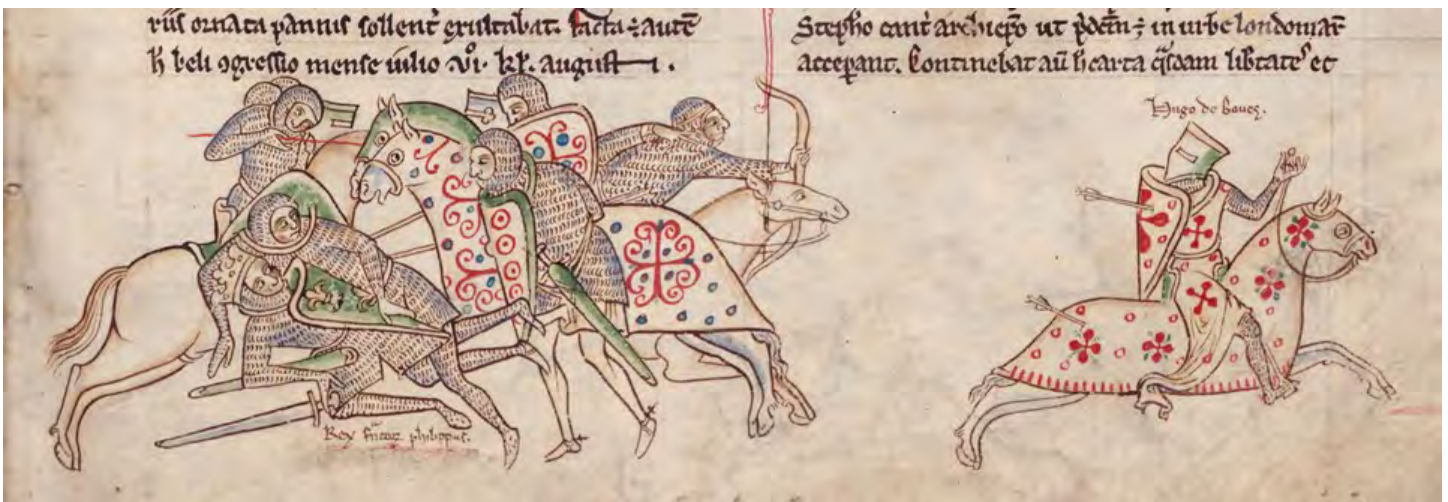 riis ornata pannis sollent͛ exultabat. facta ÷ aute᷒
h̄ beli ꝯgressio mense iulio .VI. kł. augusti.
Stepho cant᷒ archiepo ut p̄dcm ÷ in urbe londoniar᷒
acceperant. Continebat aū h̄ carta q̄sdam libtates et
Hugo de boues.
Rex francor᷒ philippus.